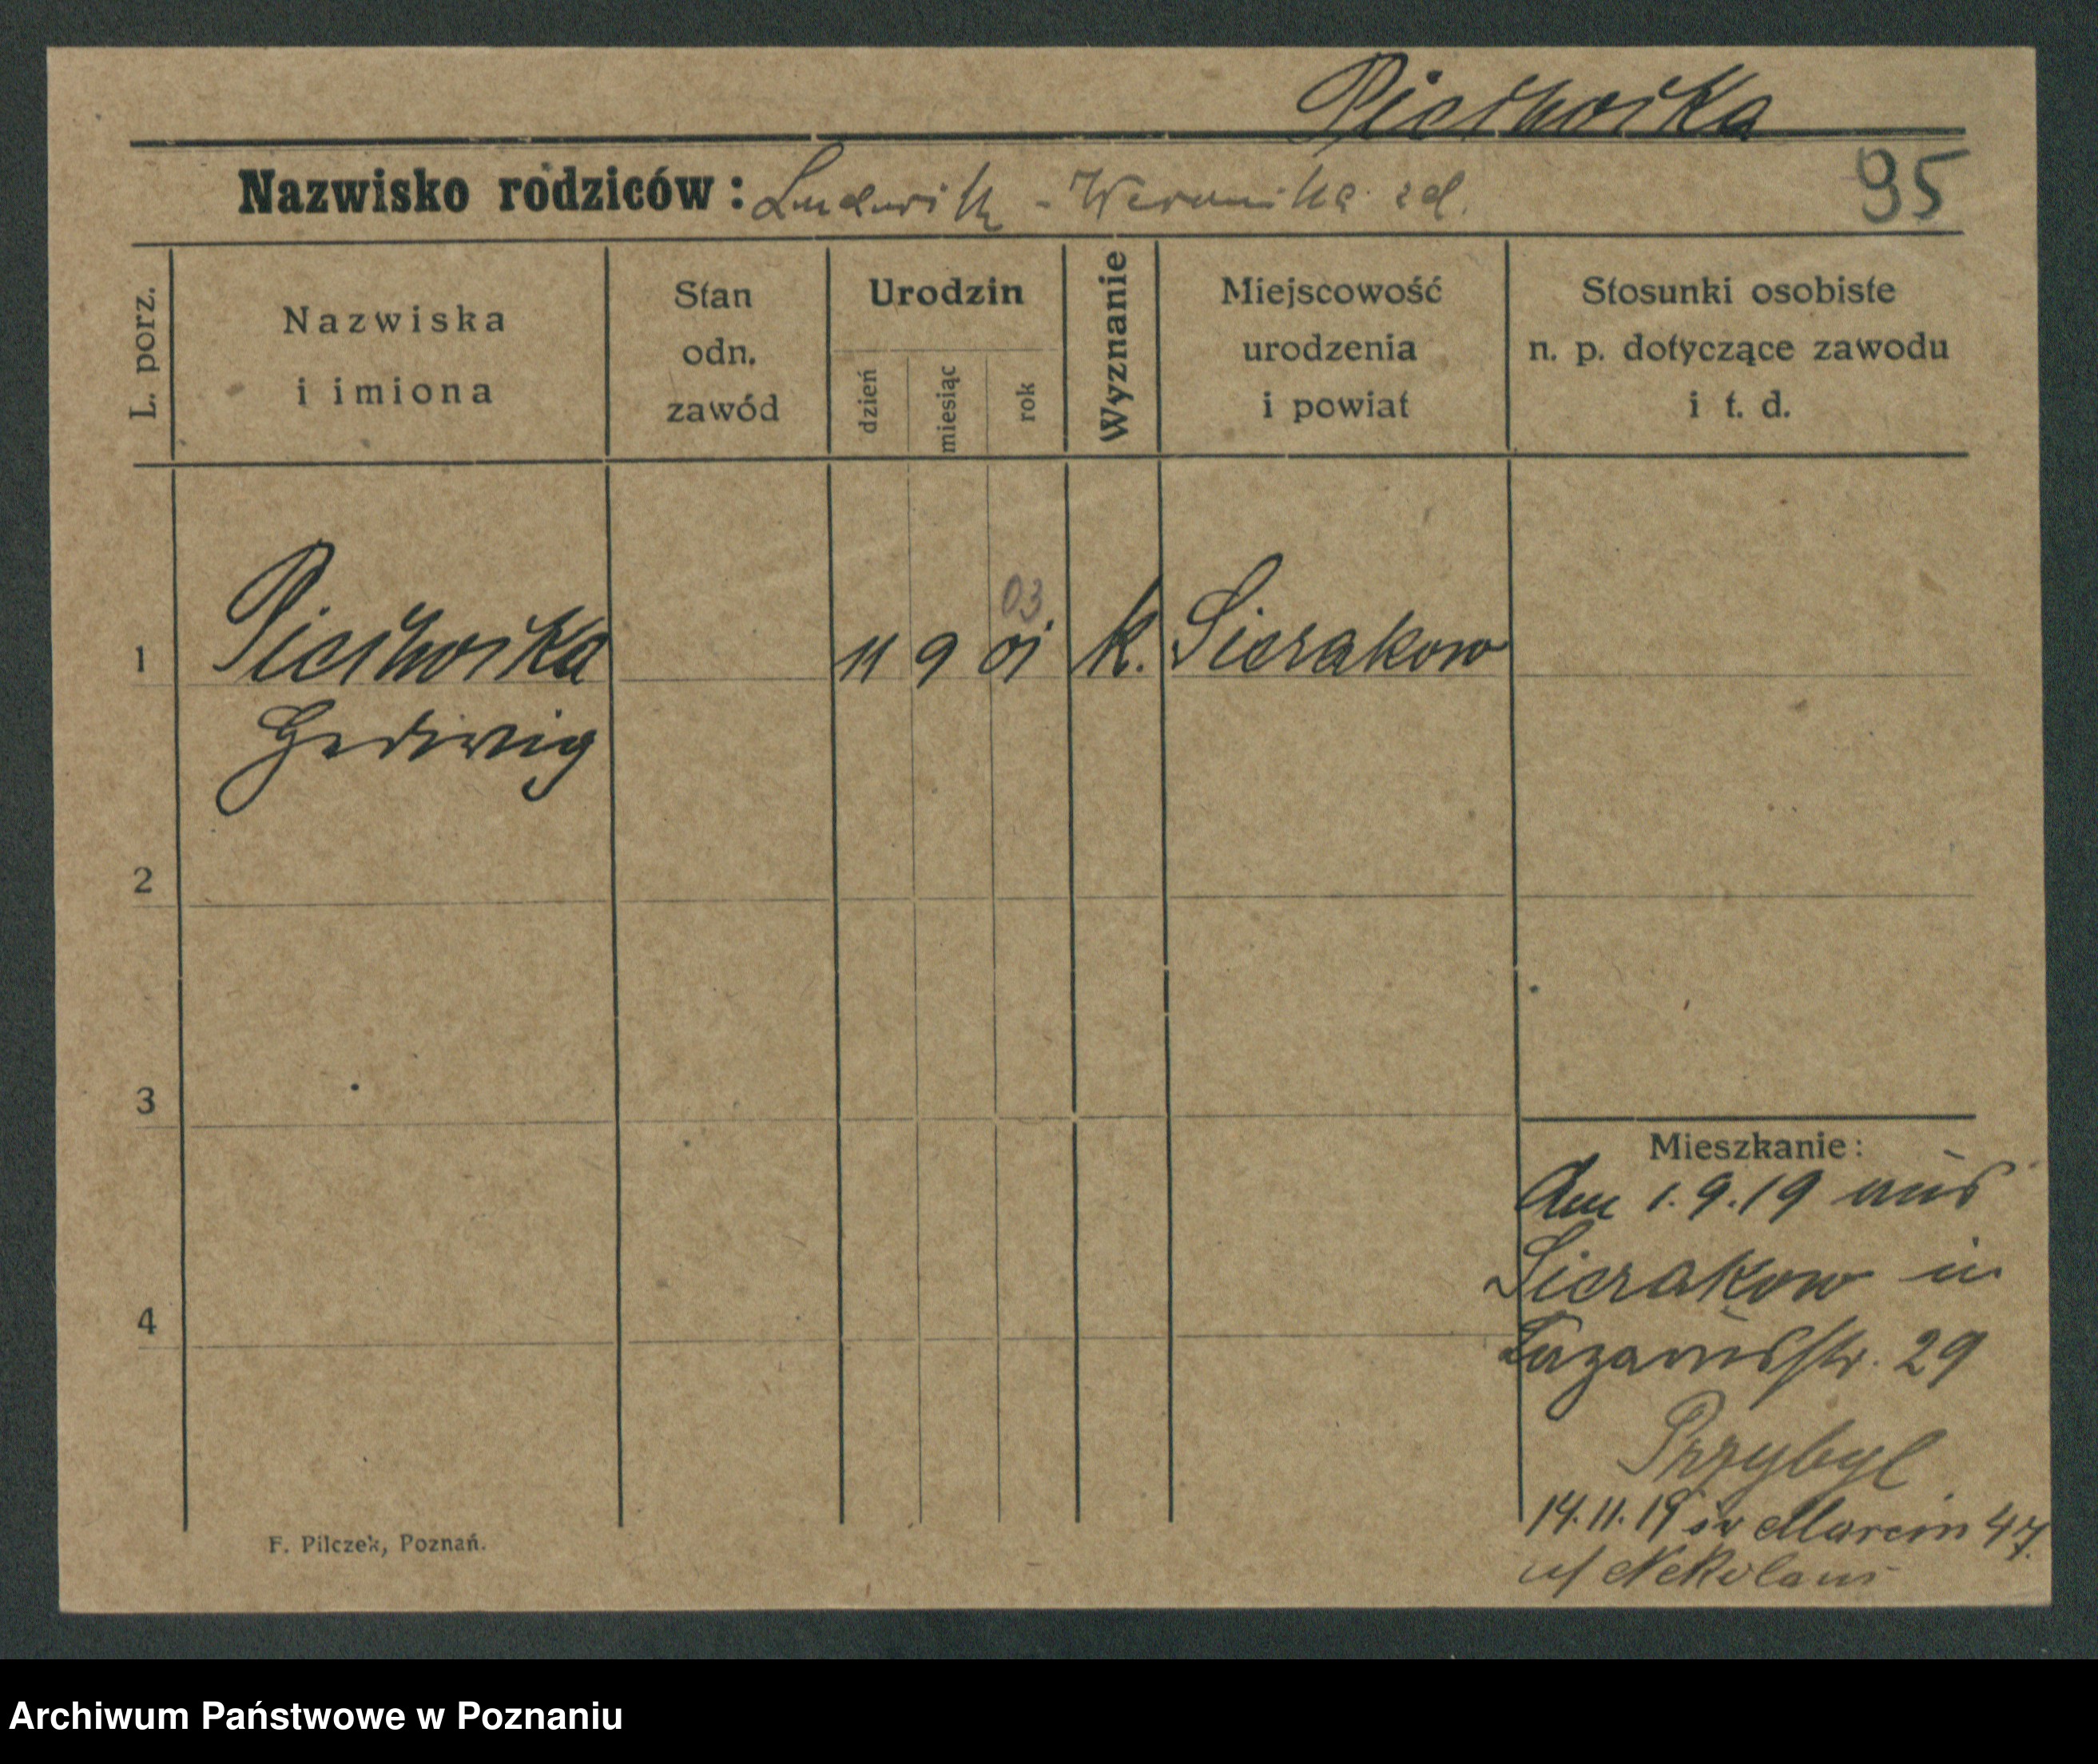 Piechocka
Nazwisko rodziców: Ludwik - Weronika zd.
95
L. porz.
Nazwiska
i imiona
Stan
odn.
zawód
Urodzin
dzień
miesiąc
rok
Wyznanie
Miejscowość
urodzenia
i powiat
Stosunki osobiste
n. p. dotyczące zawodu
i t. d.
03
1 Piechocka 11 9 01 k. Sierakow
Hedwig
2
3
4
Mieszkanie:
Am 1.9.19 aus
Sierakow in
Lazarusstr. 29
Przybyl
14.11.19 św Marcin 47.
F. Pilczek, Poznań.
Archiwum Państwowe w Poznaniu